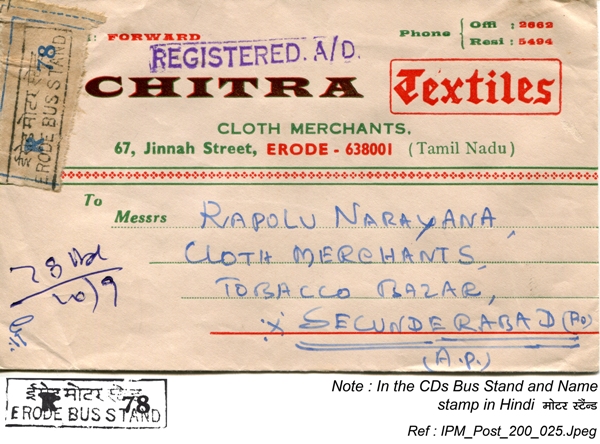 : FORWARD
REGISTERED. A/D.
Phone { Offi : 2662
Resi : 5494
CHITRA Textiles
CLOTH MERCHANTS,
67, Jinnah Street, ERODE - 638001 (Tamil Nadu)
78
ईरोड मोटर स्टैन्ड
ERODE BUS STAND
To
Messrs
RAPOLU NARAYANA,
CLOTH MERCHANTS,
TOBACCO BAZAR,
SECUNDERABAD (PO)
(A.P.)
78
20/9
ईरोड मोटर स्टैन्ड
ERODE BUS STAND
78
Note : In the CDs Bus Stand and Name
stamp in Hindi मोटर स्टैन्ड
Ref : IPM_Post_200_025.Jpeg